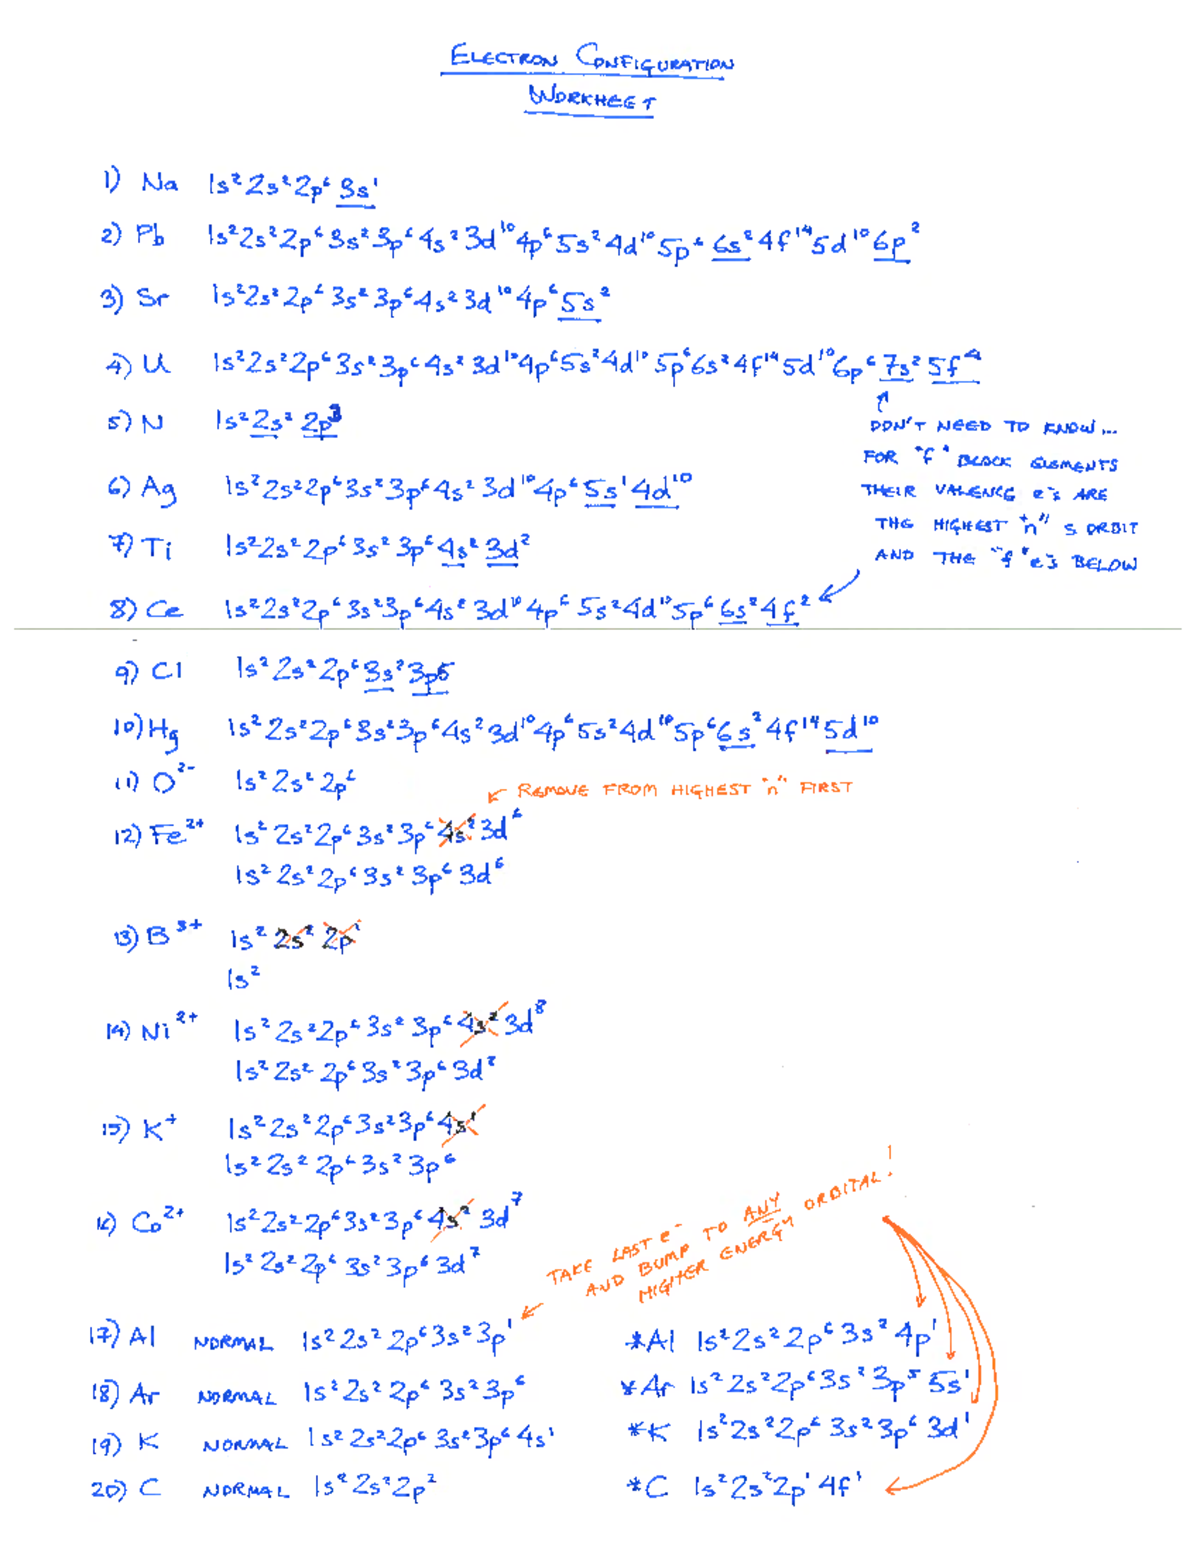 ELECTRON CONFIGURATION
WORKHEET
1) Na 1s²2s²2p⁶3s¹
2) Pb 1s²2s²2p⁶3s²3p⁶4s²3d¹⁰4p⁶5s²4d¹⁰5p⁶6s²4f¹⁴5d¹⁰6p²
3) Sr 1s²2s²2p⁶3s²3p⁶4s²3d¹⁰4p⁶5s²
4) U 1s²2s²2p⁶3s²3p⁶4s²3d¹⁰4p⁶5s²4d¹⁰5p⁶6s²4f¹⁴5d¹⁰6p⁶7s²5f⁴
5) N 1s²2s²2p³
DON'T NEED TO KNOW...
FOR "f" BLOCK ELEMENTS
THEIR VALENCE e's ARE
THE HIGHEST "n" s ORBIT
AND THE "f" e's BELOW
6) Ag 1s²2s²2p⁶3s²3p⁶4s²3d¹⁰4p⁶5s¹4d¹⁰
7) Ti 1s²2s²2p⁶3s²3p⁶4s²3d²
8) Ce 1s²2s²2p⁶3s²3p⁶4s²3d¹⁰4p⁶5s²4d¹⁰5p⁶6s²4f²
9) Cl 1s²2s²2p⁶3s²3p5
10) Hg 1s²2s²2p⁶3s²3p⁶4s²3d¹⁰4p⁶5s²4d¹⁰5p⁶6s²4f¹⁴5d¹⁰
11) O²⁻ 1s²2s²2p⁶
REMOVE FROM HIGHEST "n" FIRST
12) Fe²⁺ 1s²2s²2p⁶3s²3p⁶4s²3d⁶
1s²2s²2p⁶3s²3p⁶3d⁶
13) B³⁺ 1s²2s²2p¹
1s²
14) Ni²⁺ 1s²2s²2p⁶3s²3p⁶4s²3d⁸
1s²2s²2p⁶3s²3p⁶3d⁸
15) K⁺ 1s²2s²2p⁶3s²3p⁶4s¹
1s²2s²2p⁶3s²3p⁶
16) Co²⁺ 1s²2s²2p⁶3s²3p⁶4s²3d⁷
1s²2s²2p⁶3s²3p⁶3d⁷
TAKE LAST e⁻ TO ANY ORBITAL!
AND BUMP
HIGHER ENERGY
17) Al NORMAL 1s²2s²2p⁶3s²3p¹ *Al 1s²2s²2p⁶3s²4p¹
18) Ar NORMAL 1s²2s²2p⁶3s²3p⁶ *Ar 1s²2s²2p⁶3s²3p⁵5s¹
19) K NORMAL 1s²2s²2p⁶3s²3p⁶4s¹ *K 1s²2s²2p⁶3s²3p⁶3d¹
20) C NORMAL 1s²2s²2p² *C 1s²2s²2p¹4f¹